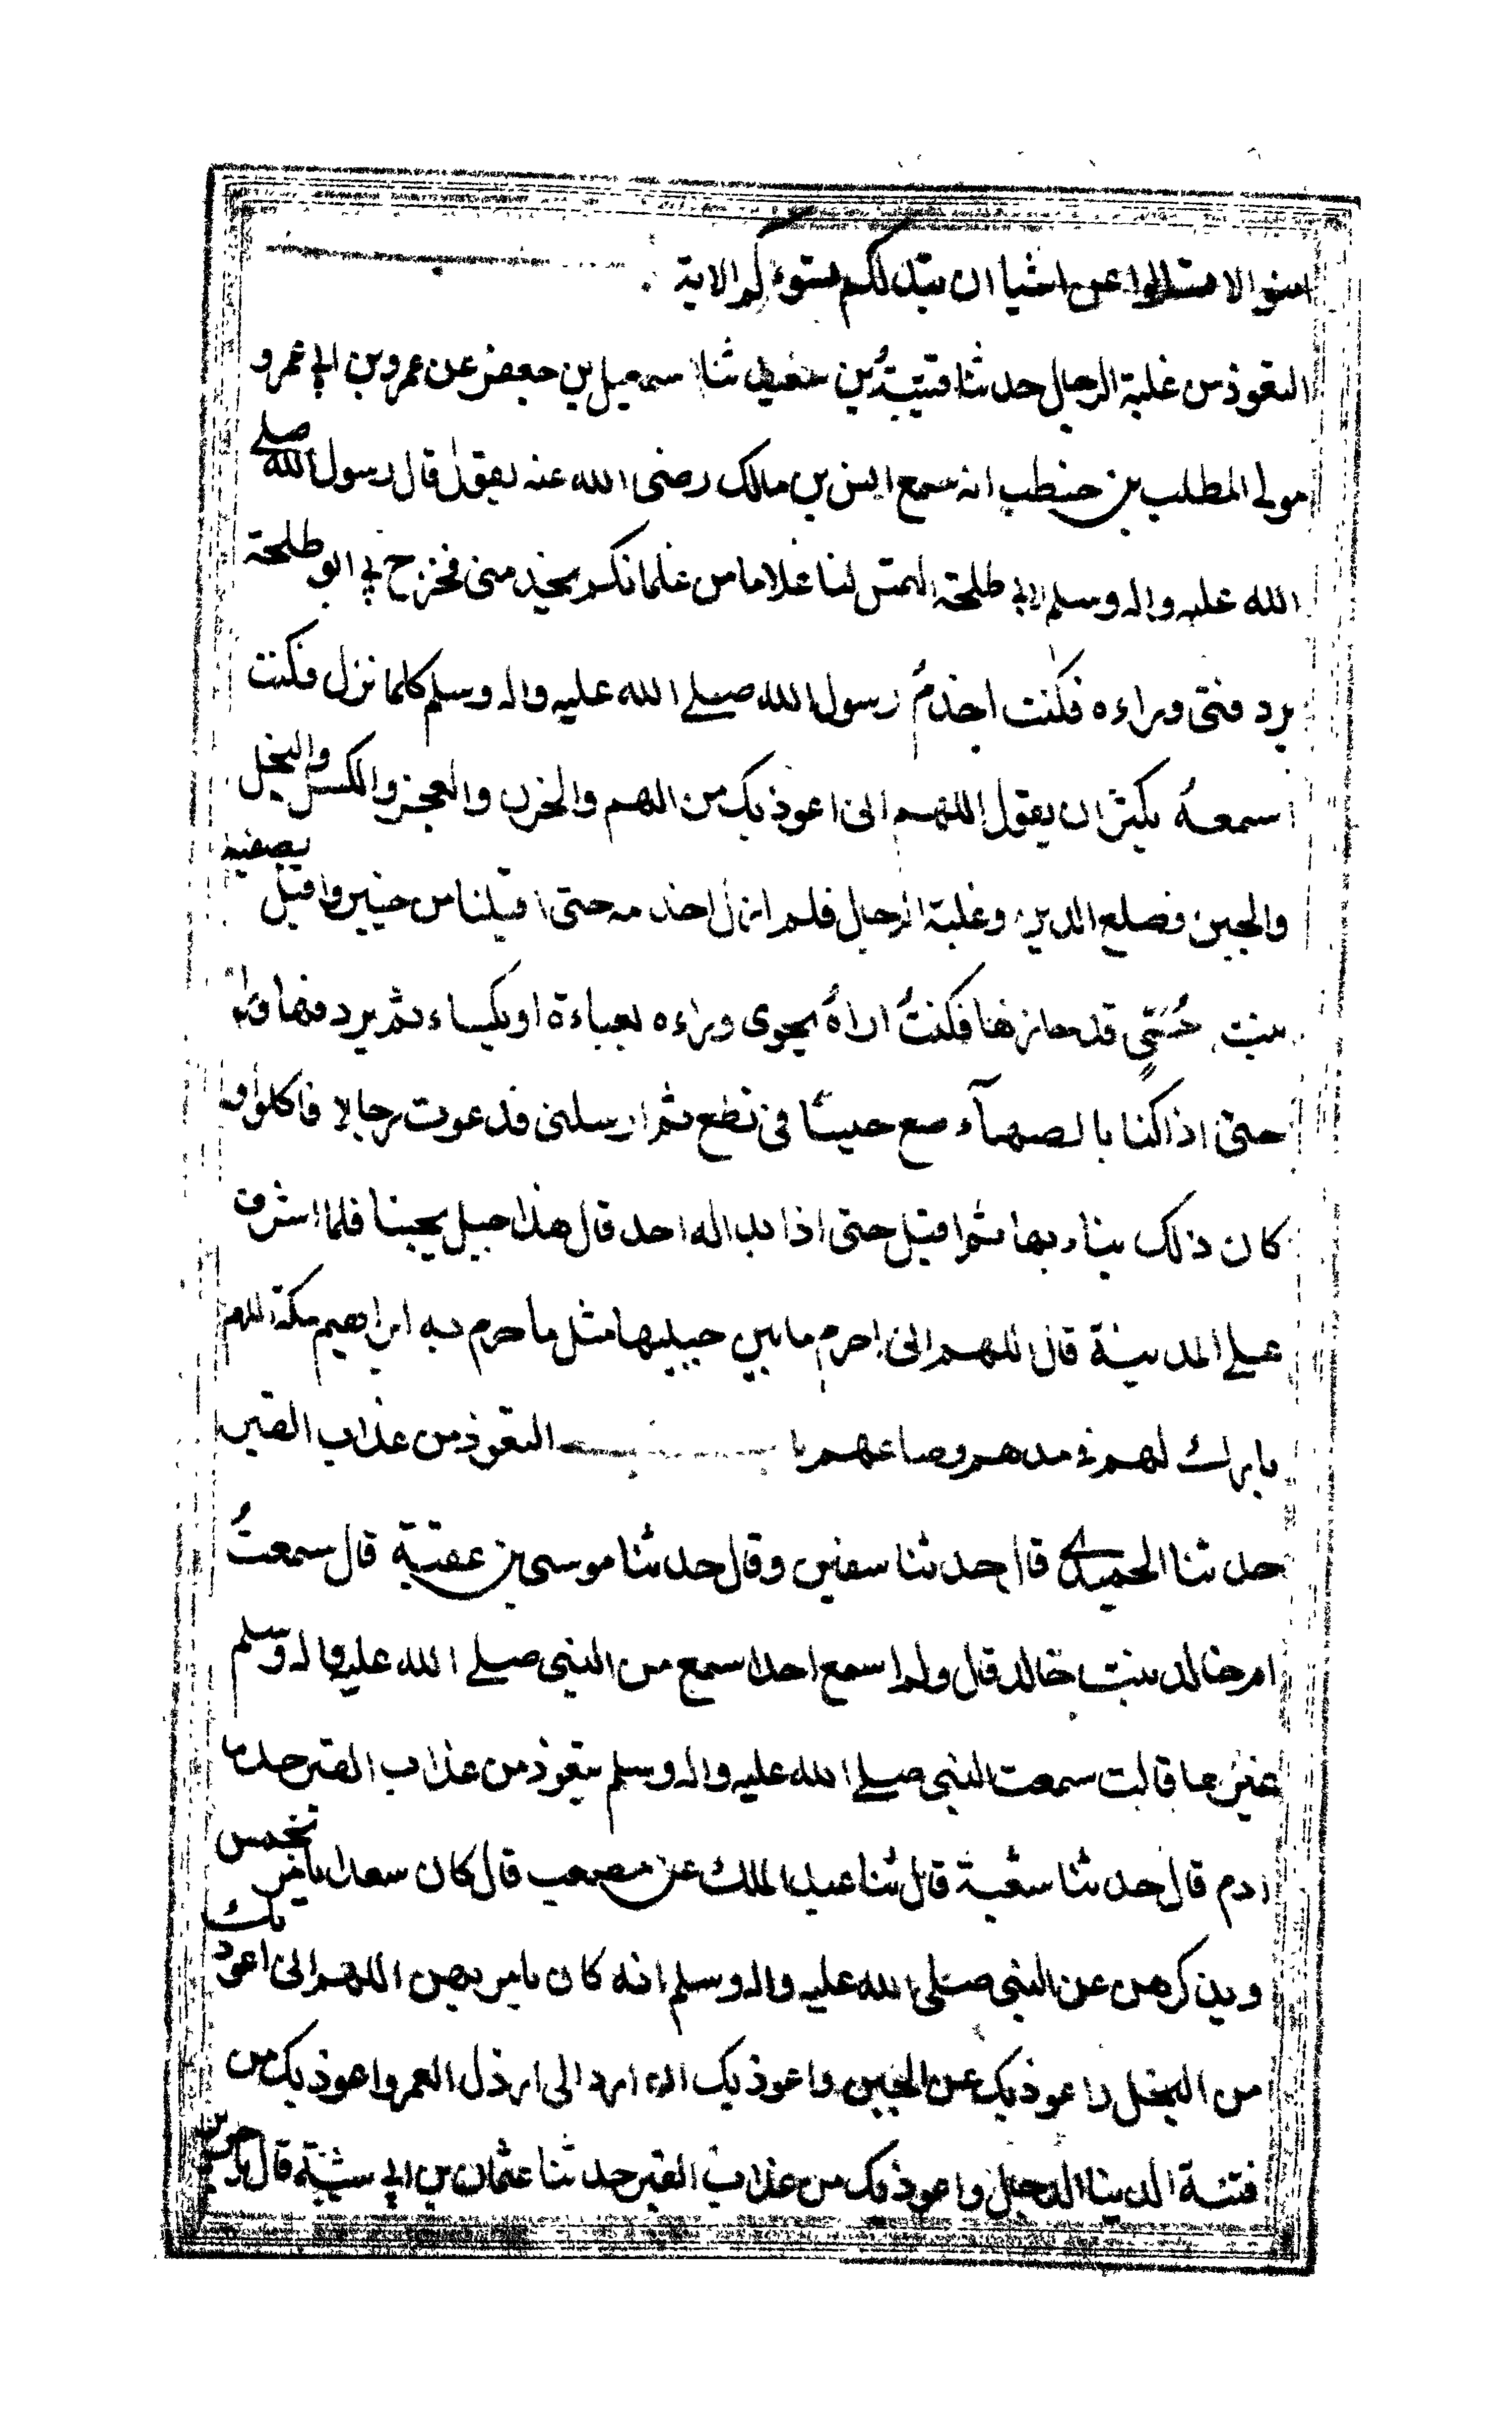 امنوا لا تسالوا عن اشيا ان تبد لكم تسوءكم الاية . باب
التعوذ من غلبة الرجال حدثنا قتيبة بن سعيد ثنا اسمعيل بن جعفر عن عمرو بن ابي عمرو
مولى المطلب بن حنطب انه سمع انس بن مالك رضى الله عنه يقول قال رسول الله صلى
الله عليه واله وسلم لابي طلحة التمس لنا غلاما من غلمانكم يخدمنى فخرج بي ابو طلحة
يردفنى وراءه فكنت اخدم رسول الله صلى الله عليه واله وسلم كلما نزل فكنت
اسمعه يكثر ان يقول اللهم انى اعوذ بك من الهم والحزن والعجز والكسل والبخل
والجبن وضلع الدين وغلبة الرجال فلم ازل اخدمه حتى اقبلنا من خيبر واقبل بصفية
بنت حُيَيٍّ قد حازها فكنتُ اراهُ يحوى وراءه بعباءة او بكساء ثم يردفها وراءه
حتى اذا كنا بالصهبآء صنع حيسًا فى نطع ثم ارسلنى فدعوت رجالا فاكلوا و
كان ذلك بناءه بها ثم اقبل حتى اذا بدا له احد قال هذا جبل يحبنا فلما اشرف
على المدينة قال اللهم انى احرم ما بين جبليها مثل ما حرم به ابراهيم مكة اللهم
بارك لهم فى مدهم وصاعهم باب التعوذ من عذاب القبر
حدثنا الحميدي قال حدثنا سفين وقال حدثنا موسى بن عقبة قال سمعتُ
ام خالد بنت خالد قال ولم اسمع احدا سمع من النبى صلى الله عليه واله وسلم
غيرها قالت سمعت النبى صلى الله عليه واله وسلم يتعوذ من عذاب القبر حدثنا
ادم قال حدثنا شعبة قال ثنا عبد الملك عن مصعب قال كان سعد يامر بخمس
ويذكرهن عن النبى صلى الله عليه واله وسلم انه كان يامر بهن اللهم انى اعوذ بك
من البخل واعوذ بك من الجبن واعوذ بك ان ارد الى ارذل العمر واعوذ بك من
فتنة الدنيا الدجال واعوذ بك من عذاب القبر حدثنا عثمان بن ابي شيبة قال ثنا جرير